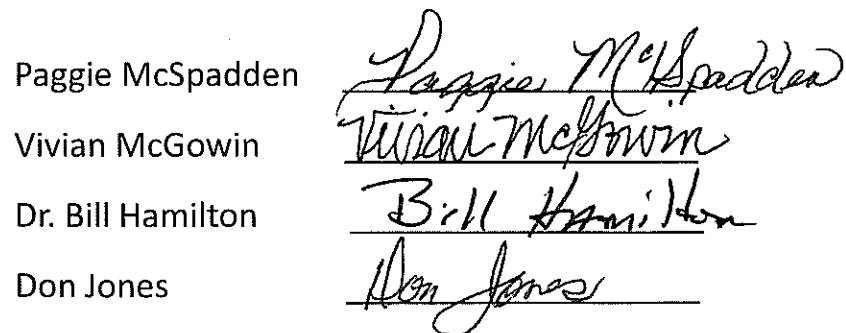 Paggie McSpadden Paggie McSpadden
Vivian McGowin Vivian McGowin
Dr. Bill Hamilton Bill Hamilton
Don Jones Don Jones